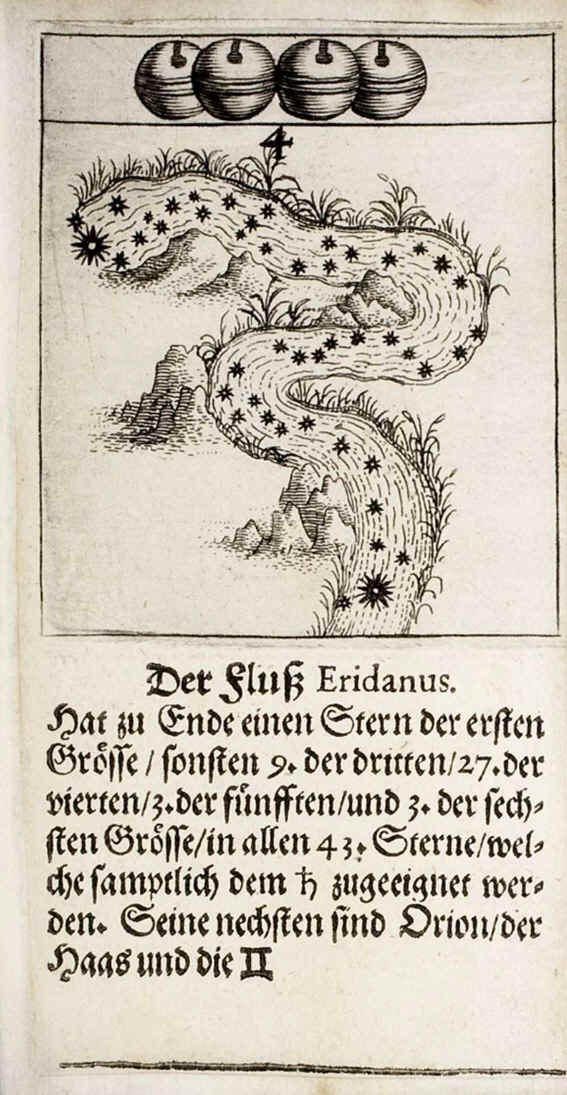 4
Der Fluß Eridanus.
Hat zu Ende einen Stern der ersten
Grösse / sonsten 9. der dritten/27.der
vierten/3.der fünfften/und 3. der sech-
sten Grösse/in allen 43. Sterne/wel-
che samptlich dem ♄ zugeeignet wer-
den. Seine nechsten sind Orion/der
Haas und die ♊